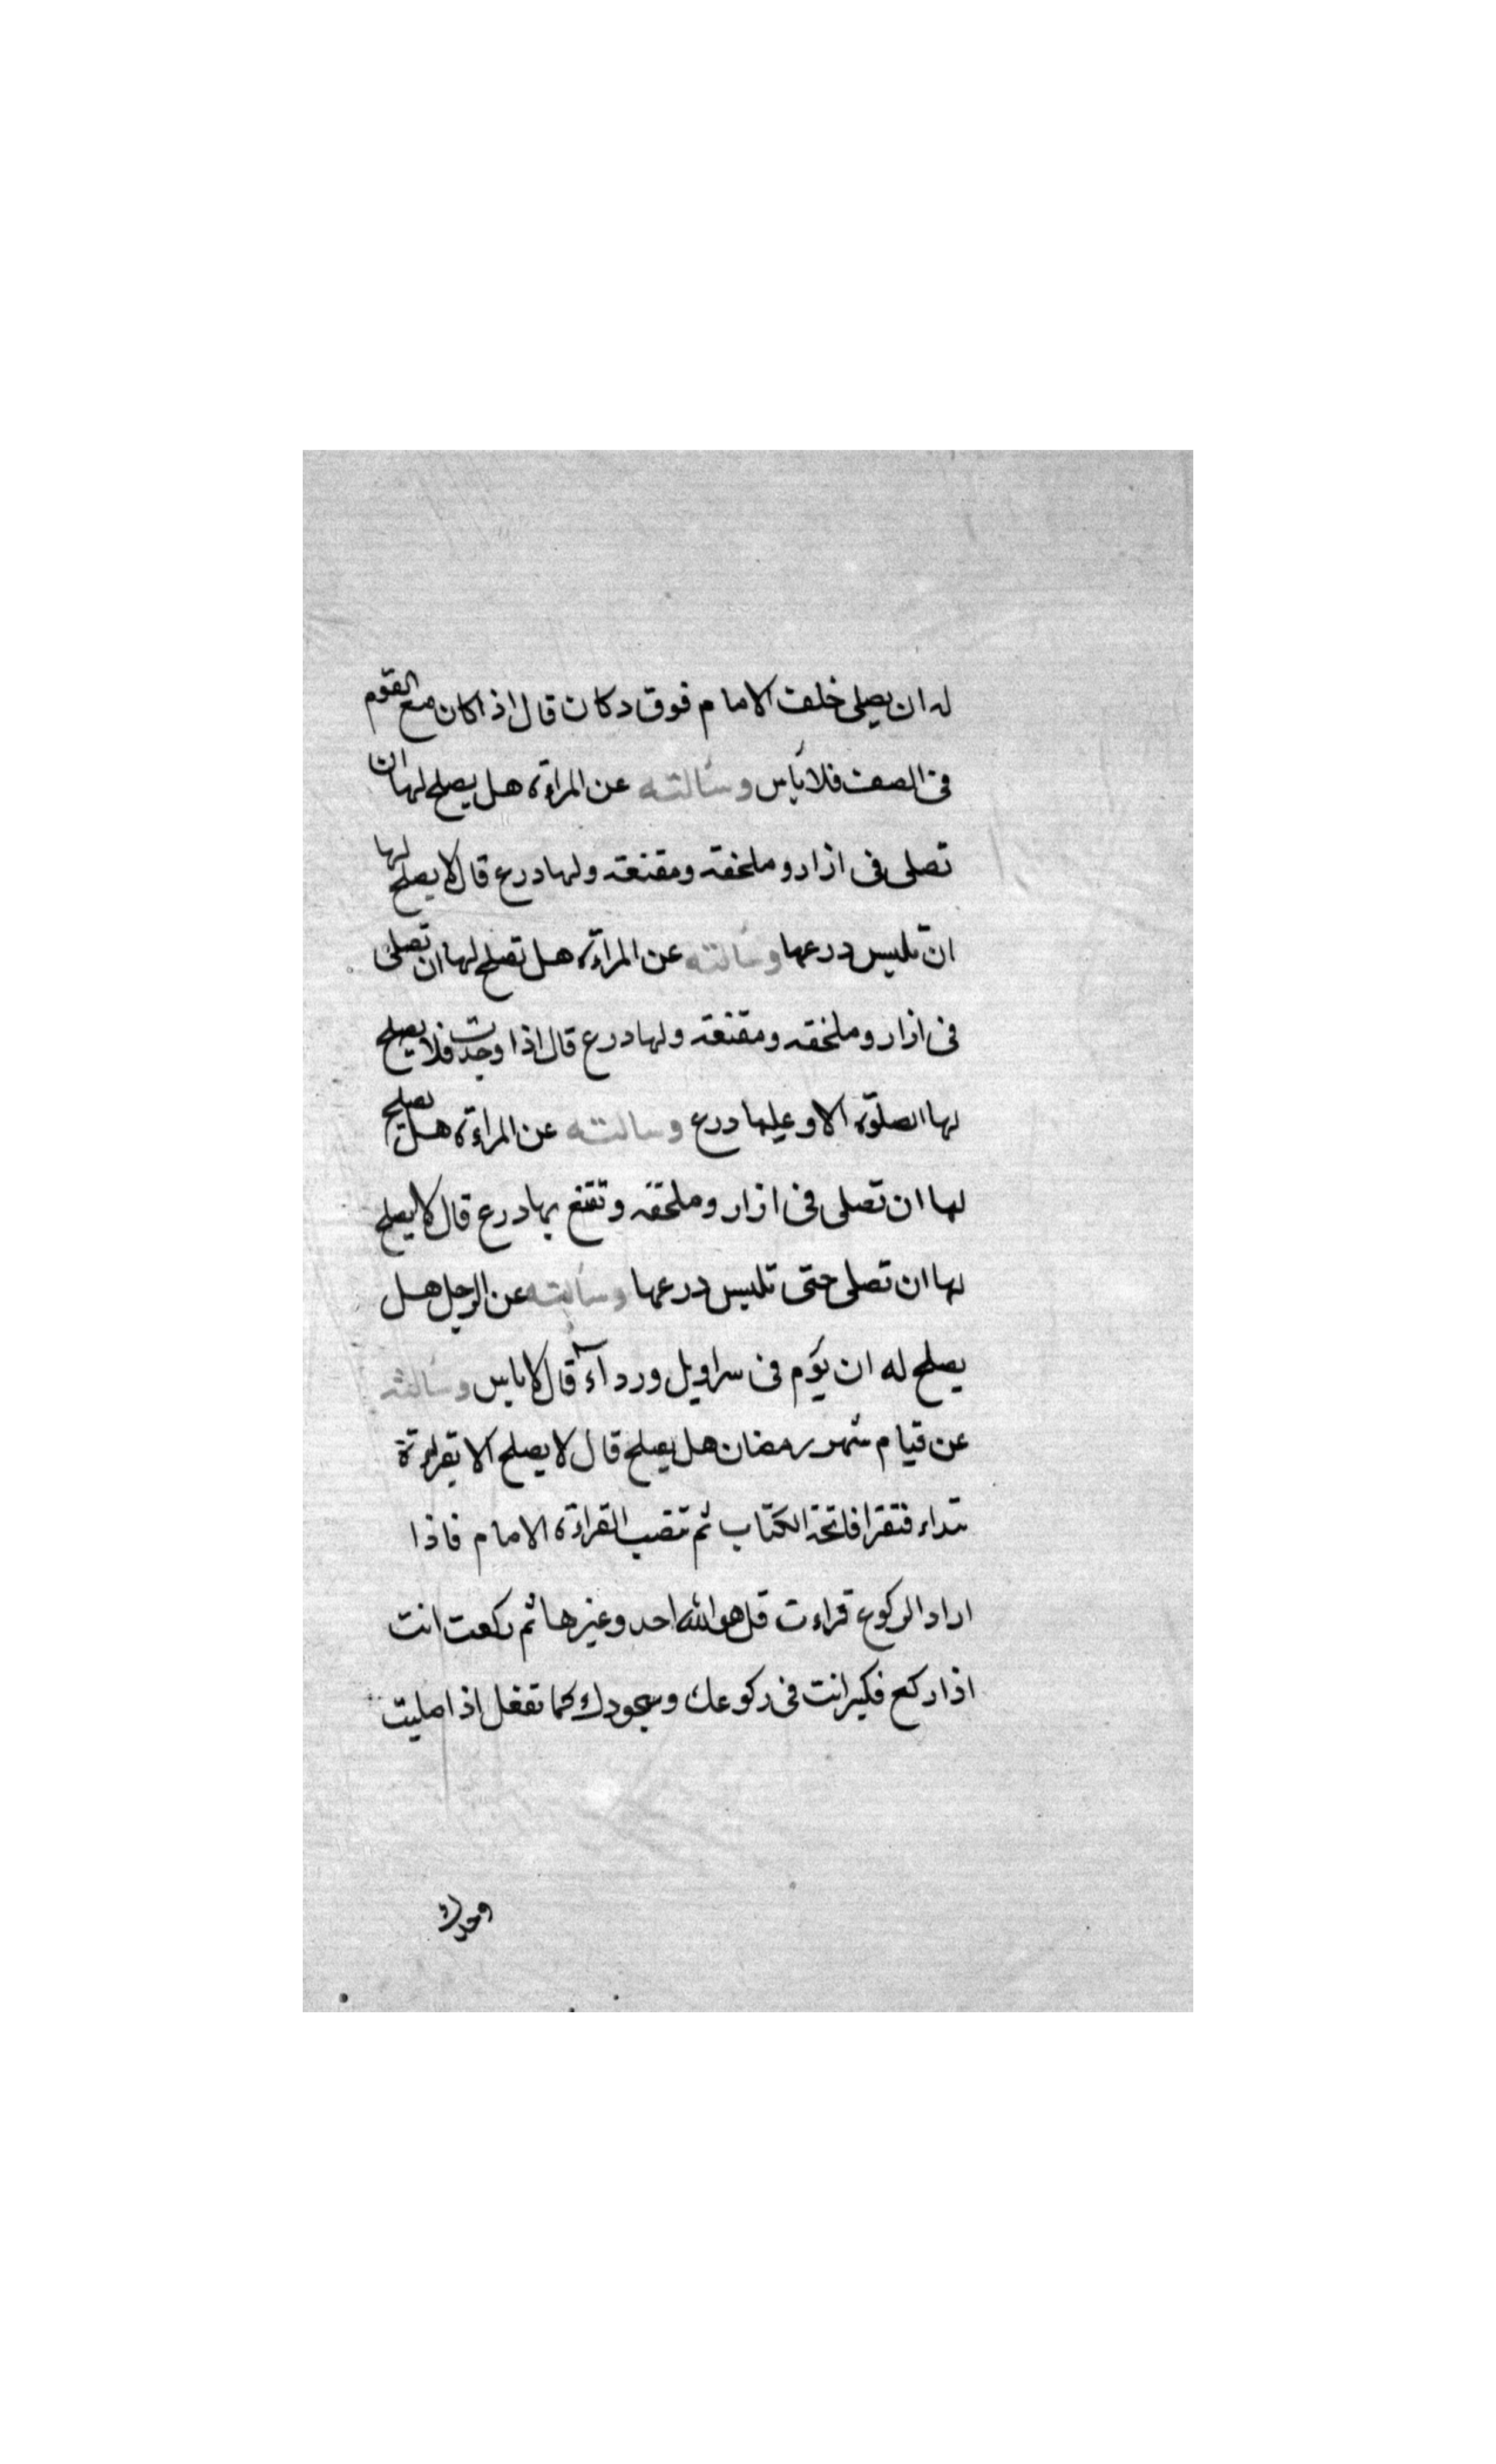 له ان يصلى خلف الامام فوق دكان قال اذا كان مع القوم
فى الصف فلا بأس وسألته عن المراءة هل يصلح لها ان
تصلى فى ازار وملحفة ومقنعة ولها درع قال لا يصلح لها
ان تلبس درعها وسألته عن المراءة هل تصلح لها ان تصلى
فى ازار وملحفه ومقنعة ولها درع قال اذا وجدت فلا يصلح
لها الصلوة الا وعليها درع وسالته عن المراءة هل يصلح
لها ان تصلى فى ازار وملحفة وتقنع بها درع قال لا يصلح
لها ان تصلى حتى تلبس درعها وسألته عن الرجل هل
يصلح له ان يؤم فى سراويل ورداء قال لا باس وسألته
عن قيام شهر رمضان هل يصلح قال لا يصلح الا بقراءة
تبداء فتقرا فاتحة الكتاب ثم تنصت القراءة الامام فاذا
اراد الركوع قراءت قل هو الله احد وغيرها ثم ركعت انت
اذا ركع فكبر انت فى ركوعك وسجودك كما تفعل اذا صليت
وحدك